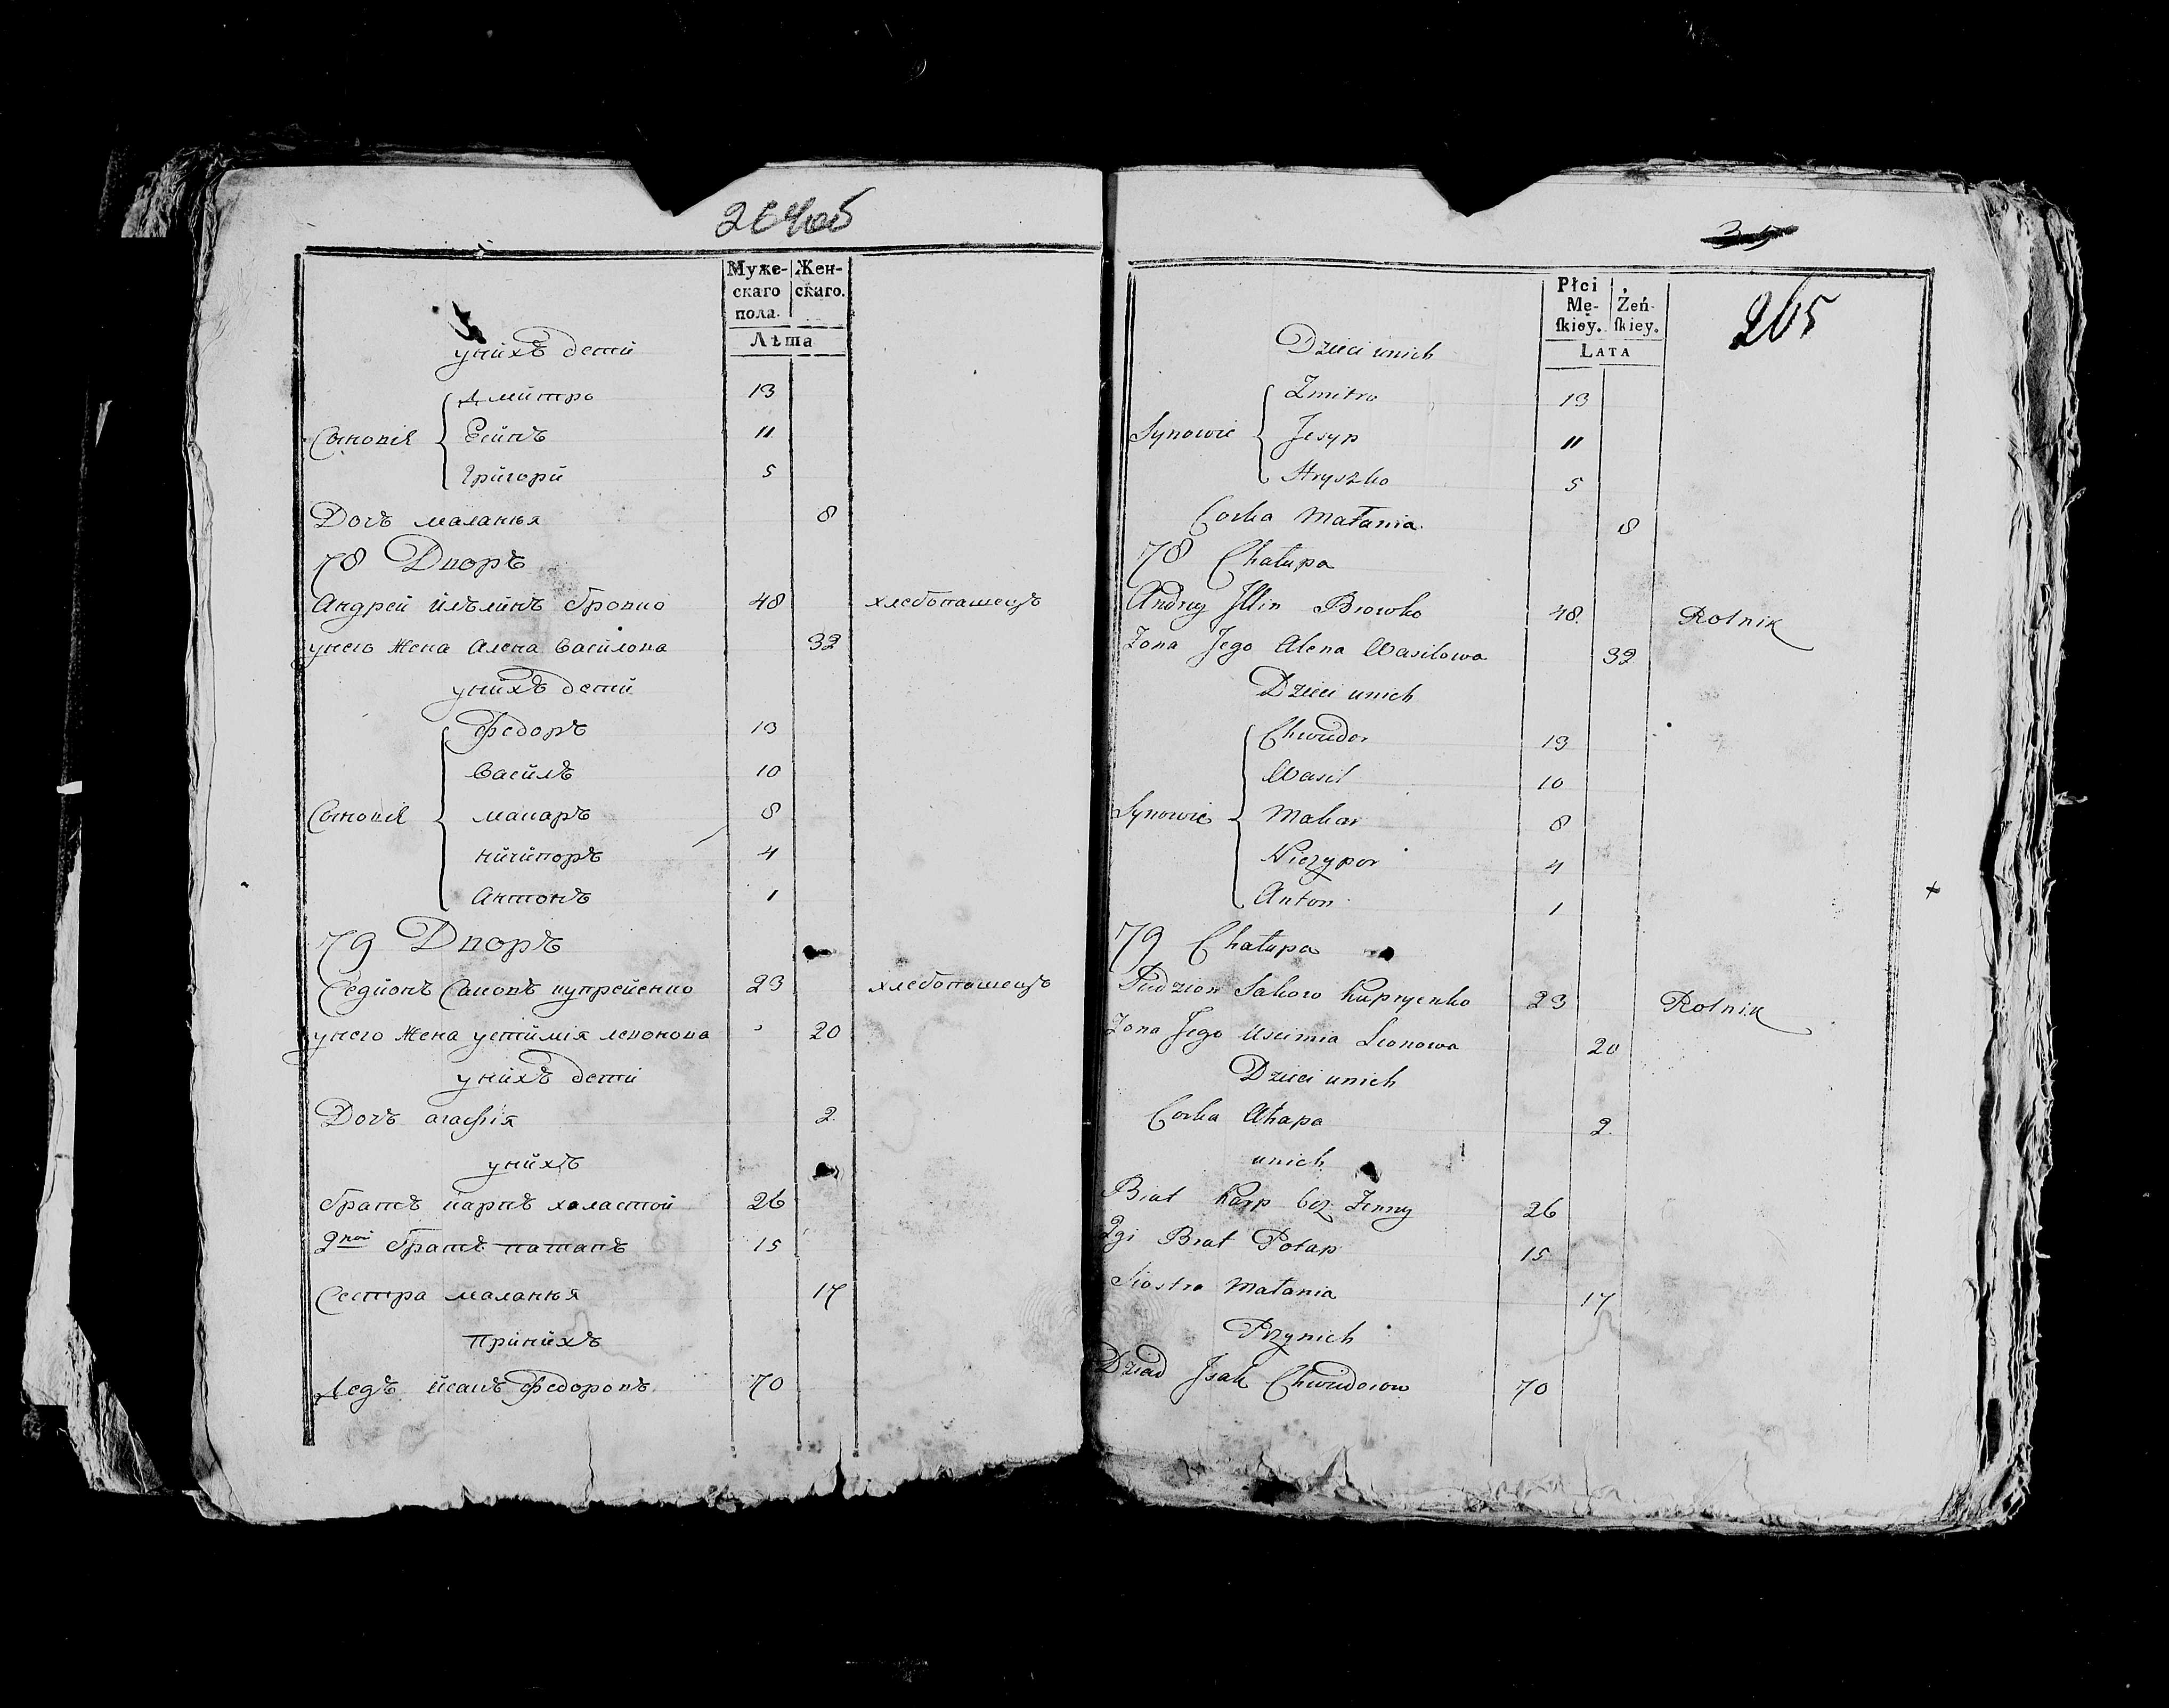 264об
Муже- Жен-
скаго скаго.
пола.
Лѣта
у нихъ дети
Дмитро 13
Сыновiя Есипъ 11
Григорй 5
Дочъ маланья 8
78 Дворъ
Андрей Ильинъ бровко 48 хлебопашецъ
у него Жена Алена Василова 32
у нихъ дети
Федоръ 13
Василъ 10
Сыновiя макаръ 8
ничипоръ 4
Антонъ 1
79 Дворъ
Саковъ купреенко 23 хлебопашецъ
у него Жена устимiя левонова 20
у нихъ дети
Дочъ агафiя 2
у нихъ
братъ карпъ холастой 26
2ной братъ патапъ 15
Сестра маланья 17
При нихъ
Дедъ исакъ Федоровъ 70
265
Płci
Mę- Żeń-
ſkiey. ſkiey.
LATA
Dzieci unich
Zmitro 13
Synowie Jesyp 11
Hryszko 5
Corka Małania 8
78 Chałupa
Andrey Illin Browko 48 Rolnik
Zona Jego Alena Wasilowa 32
Dzieci unich
Chwiedor 13
Wasil 10
Synowie Makar 8
Niczypor 4
Anton 1
79 Chałupa
Sakow Kupryenko 23 Rolnik
Zona Jego Uscimia Leonowa 20
Dzieci unich
Corka Ahapa 2
unich
Brat Karp bez Zenny 26
2gi Brat Potap 15
Siostra Małania 17
Przynich
Dziad Jsak Chwiedorow 70